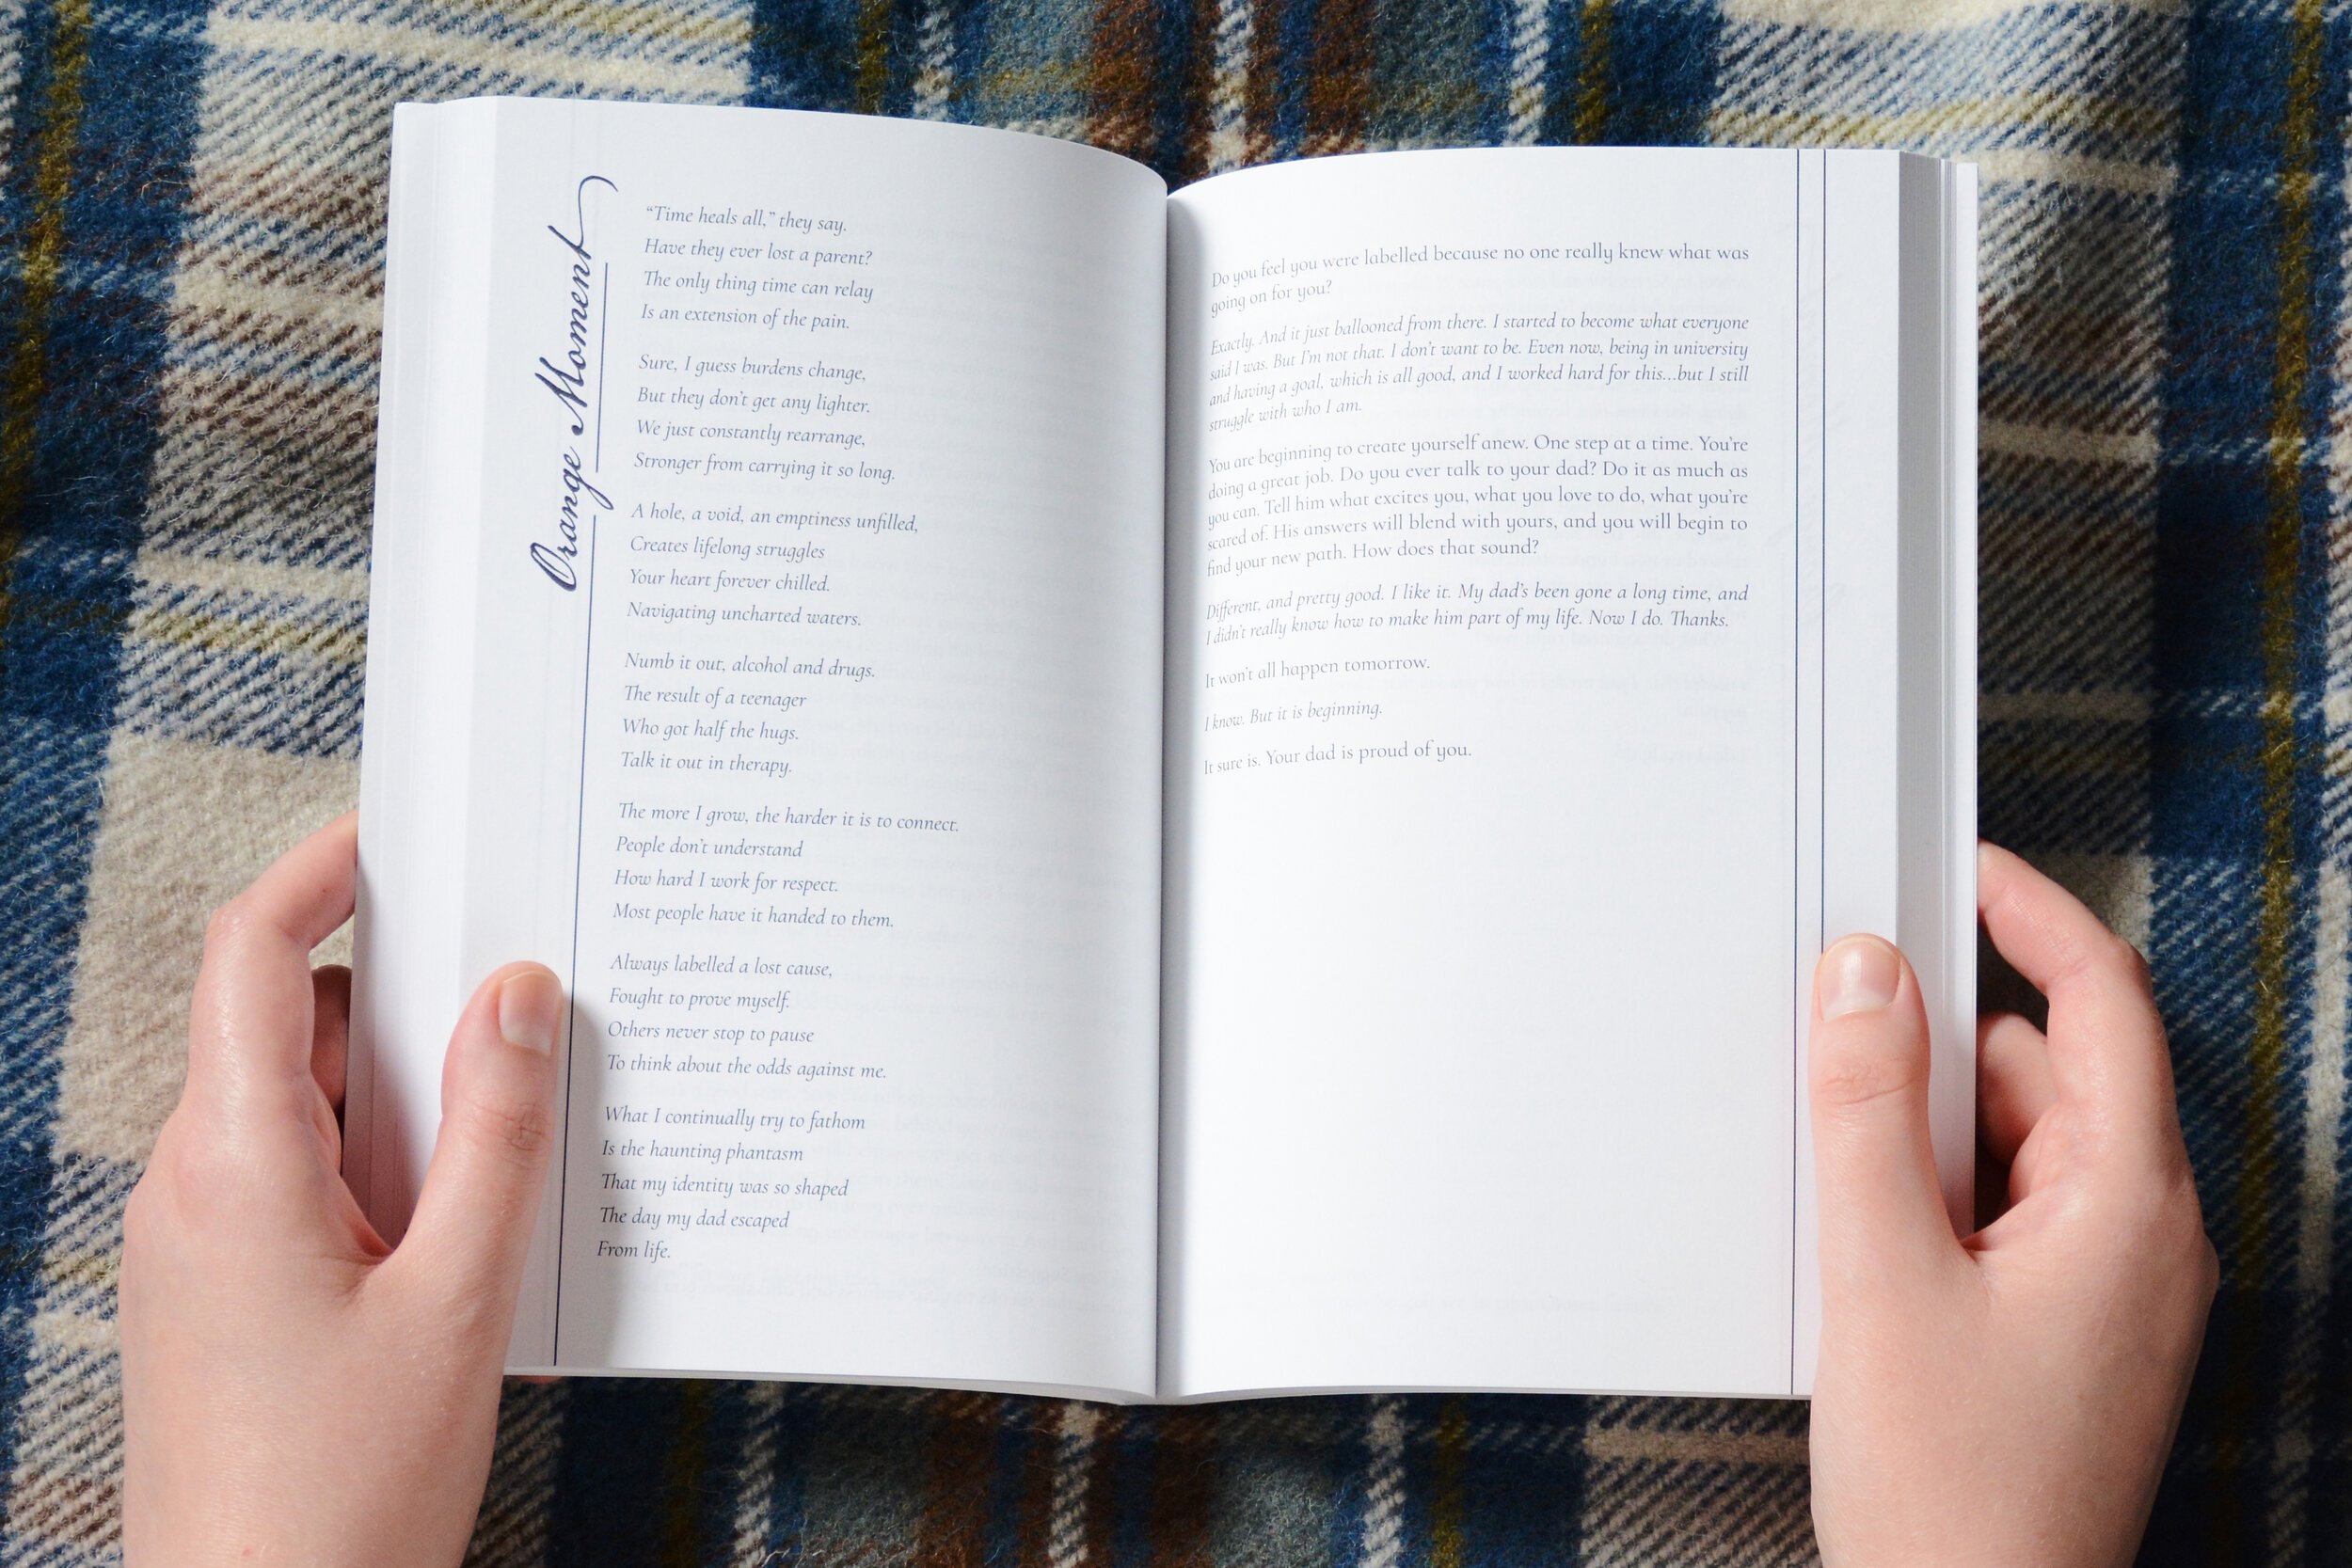 Orange Moment
“Time heals all,” they say.
Have they ever lost a parent?
The only thing time can relay
Is an extension of the pain.
Sure, I guess burdens change,
But they don’t get any lighter.
We just constantly rearrange,
Stronger from carrying it so long.
A hole, a void, an emptiness unfilled,
Creates lifelong struggles
Your heart forever chilled.
Navigating uncharted waters.
Numb it out, alcohol and drugs.
The result of a teenager
Who got half the hugs.
Talk it out in therapy.
The more I grow, the harder it is to connect.
People don’t understand
How hard I work for respect.
Most people have it handed to them.
Always labelled a lost cause,
Fought to prove myself.
Others never stop to pause
To think about the odds against me.
What I continually try to fathom
Is the haunting phantasm
That my identity was so shaped
The day my dad escaped
From life.
Do you feel you were labelled because no one really knew what was
going on for you?
Exactly. And it just ballooned from there. I started to become what everyone
said I was. But I’m not that. I don’t want to be. Even now, being in university
and having a goal, which is all good, and I worked hard for this…but I still
struggle with who I am.
You are beginning to create yourself anew. One step at a time. You’re
doing a great job. Do you ever talk to your dad? Do it as much as
you can. Tell him what excites you, what you love to do, what you’re
scared of. His answers will blend with yours, and you will begin to
find your new path. How does that sound?
Different, and pretty good. I like it. My dad’s been gone a long time, and
I didn’t really know how to make him part of my life. Now I do. Thanks.
It won’t all happen tomorrow.
I know. But it is beginning.
It sure is. Your dad is proud of you.